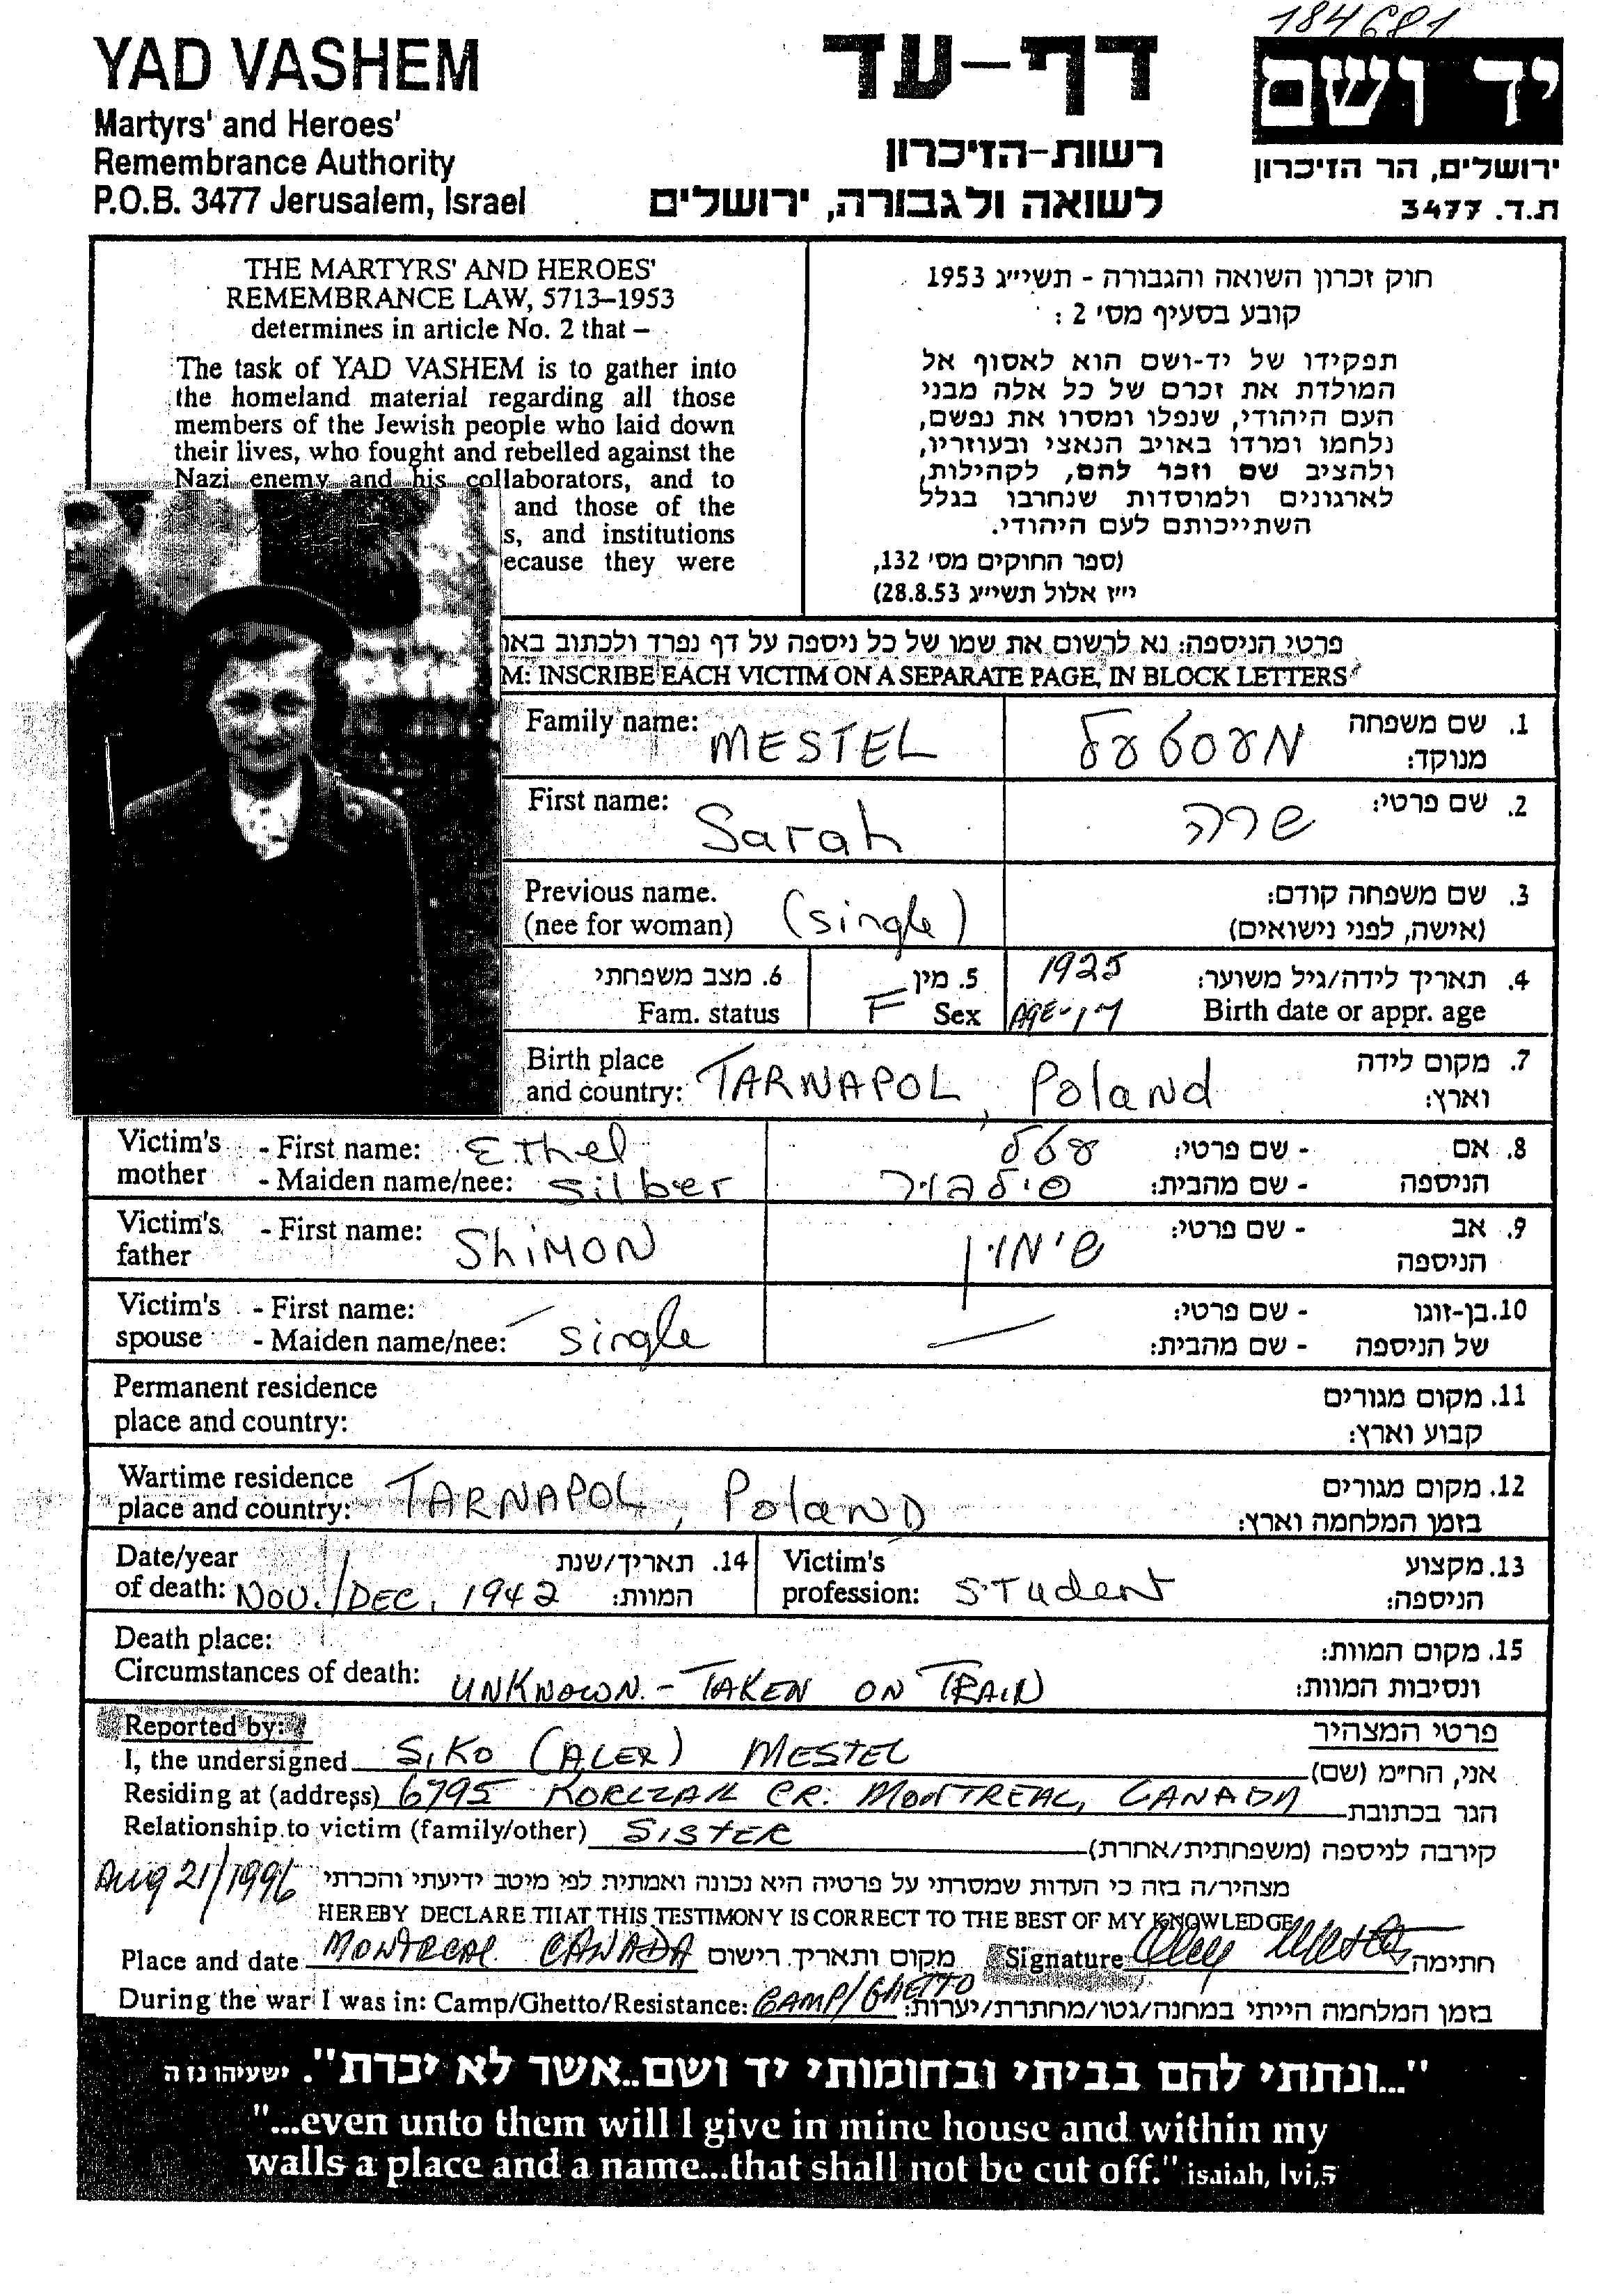 184681
YAD VASHEM
Martyrs' and Heroes'
Remembrance Authority
P.O.B. 3477 Jerusalem, Israel
דף-עד
רשות-הזיכרון
לשואה ולגבורה, ירושלים
יד ושם
ירושלים, הר הזיכרון
ת.ד. 3477
THE MARTYRS' AND HEROES'
REMEMBRANCE LAW, 5713–1953
determines in article No. 2 that –
The task of YAD VASHEM is to gather into
the homeland material regarding all those
members of the Jewish people who laid down
their lives, who fought and rebelled against the
Nazi enemy and his collaborators, and to
and those of the
s, and institutions
ecause they were
חוק זכרון השואה והגבורה - תשי״ג 1953
קובע בסעיף מס׳ 2 :
תפקידו של יד-ושם הוא לאסוף אל
המולדת את זכרם של כל אלה מבני
העם היהודי, שנפלו ומסרו את נפשם,
נלחמו ומרדו באויב הנאצי ובעוזריו,
ולהציב שם וזכר להם, לקהילות,
לארגונים ולמוסדות שנחרבו בגלל
השתייכותם לעם היהודי.
(ספר החוקים מס׳ 132,
י״ז אלול תשי״ג 28.8.53)
פרטי הניספה: נא לרשום את שמו של כל ניספה על דף נפרד ולכתוב באו
M: INSCRIBE EACH VICTIM ON A SEPARATE PAGE, IN BLOCK LETTERS
Family name: MESTEL מעסטעל 1. שם משפחה
מנוקד:
First name: Sarah שרה 2. שם פרטי:
Previous name. 3. שם משפחה קודם:
(nee for woman) (single) (אישה, לפני נישואים)
6. מצב משפחתי 5. מין 1925 4. תאריך לידה/גיל משוער:
Fam. status F Sex AGE-17 Birth date or appr. age
Birth place 7. מקום לידה
and country: TARNAPOL, Poland וארץ:
Victim's - First name: Ethel עטל - שם פרטי: 8. אם
mother - Maiden name/nee: Silber - שם מהבית: הניספה
Victim's - First name: ShiMON שימון - שם פרטי: 9. אב
father הניספה
Victim's - First name: - שם פרטי: 10. בן-זוגו
spouse - Maiden name/nee: single - שם מהבית: של הניספה
Permanent residence 11. מקום מגורים
place and country: קבוע וארץ:
Wartime residence 12. מקום מגורים
place and country: TARNAPOL, Poland בזמן המלחמה וארץ:
Date/year 14. תאריך/שנת Victim's 13. מקצוע
of death: NOV./DEC. 1942 המוות: profession: STudent הניספה:
Death place: 15. מקום המוות:
Circumstances of death: UNKNOWN - TAKEN ON TRAIN ונסיבות המוות:
Reported by: פרטי המצהיר
I, the undersigned SIKO MESTEL אני, הח״מ (שם)
Residing at (address) 6795 CR. MONTREAL, CANADA הגר בכתובת
Relationship to victim (family/other) SISTER קירבה לניספה (משפחתית/אחרת)
Aug 21/1996 מצהיר/ה בזה כי העדות שמסרתי על פרטיה היא נכונה ואמתית לפי מיטב ידיעתי והכרתי
HEREBY DECLARE THAT THIS TESTIMONY IS CORRECT TO THE BEST OF MY KNOWLEDGE
Place and date MONTREAL CANADA מקום ותאריך רישום Signature חתימה
During the war I was in: Camp/Ghetto/Resistance: CAMP/GHETTO בזמן המלחמה הייתי במחנה/גטו/מחתרת/יערות:
"...ונתתי להם בביתי ובחומותי יד ושם..אשר לא יכרת". ישעיהו נו ה
"...even unto them will I give in mine house and within my
walls a place and a name...that shall not be cut off." isaiah, lvi,5